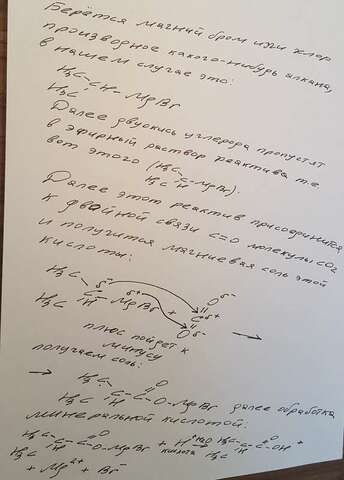 Берётся магний бром или хлор
производное какого-нибудь алкана,
в нашем случае это:
H₃C
CH-MgBr
H₃C
Далее двуокись углерода пропустят
в эфирный раствор реактива т.е
вот этого (H₃C
H₃C C-MgBr).
H
Далее этот реактив присоединится
к двойной связи C=O молекулы CO₂
и получится магниевая соль этой
кислоты:
H₃C δ- δ+ O δ-
C - MgBr + C δ+ →
H₃C H O δ-
плюс пойдет к
минусу
получаем соль:
→ H₃C O
C-C-O-MgBr далее обработка
H₃C H
минеральной кислотой:
H₃C O
C-C-O-MgBr + H⁺ H₂O → H₃C C-C-OH +
H₃C H кислота H₃C H
+ Mg²⁺ + Br⁻